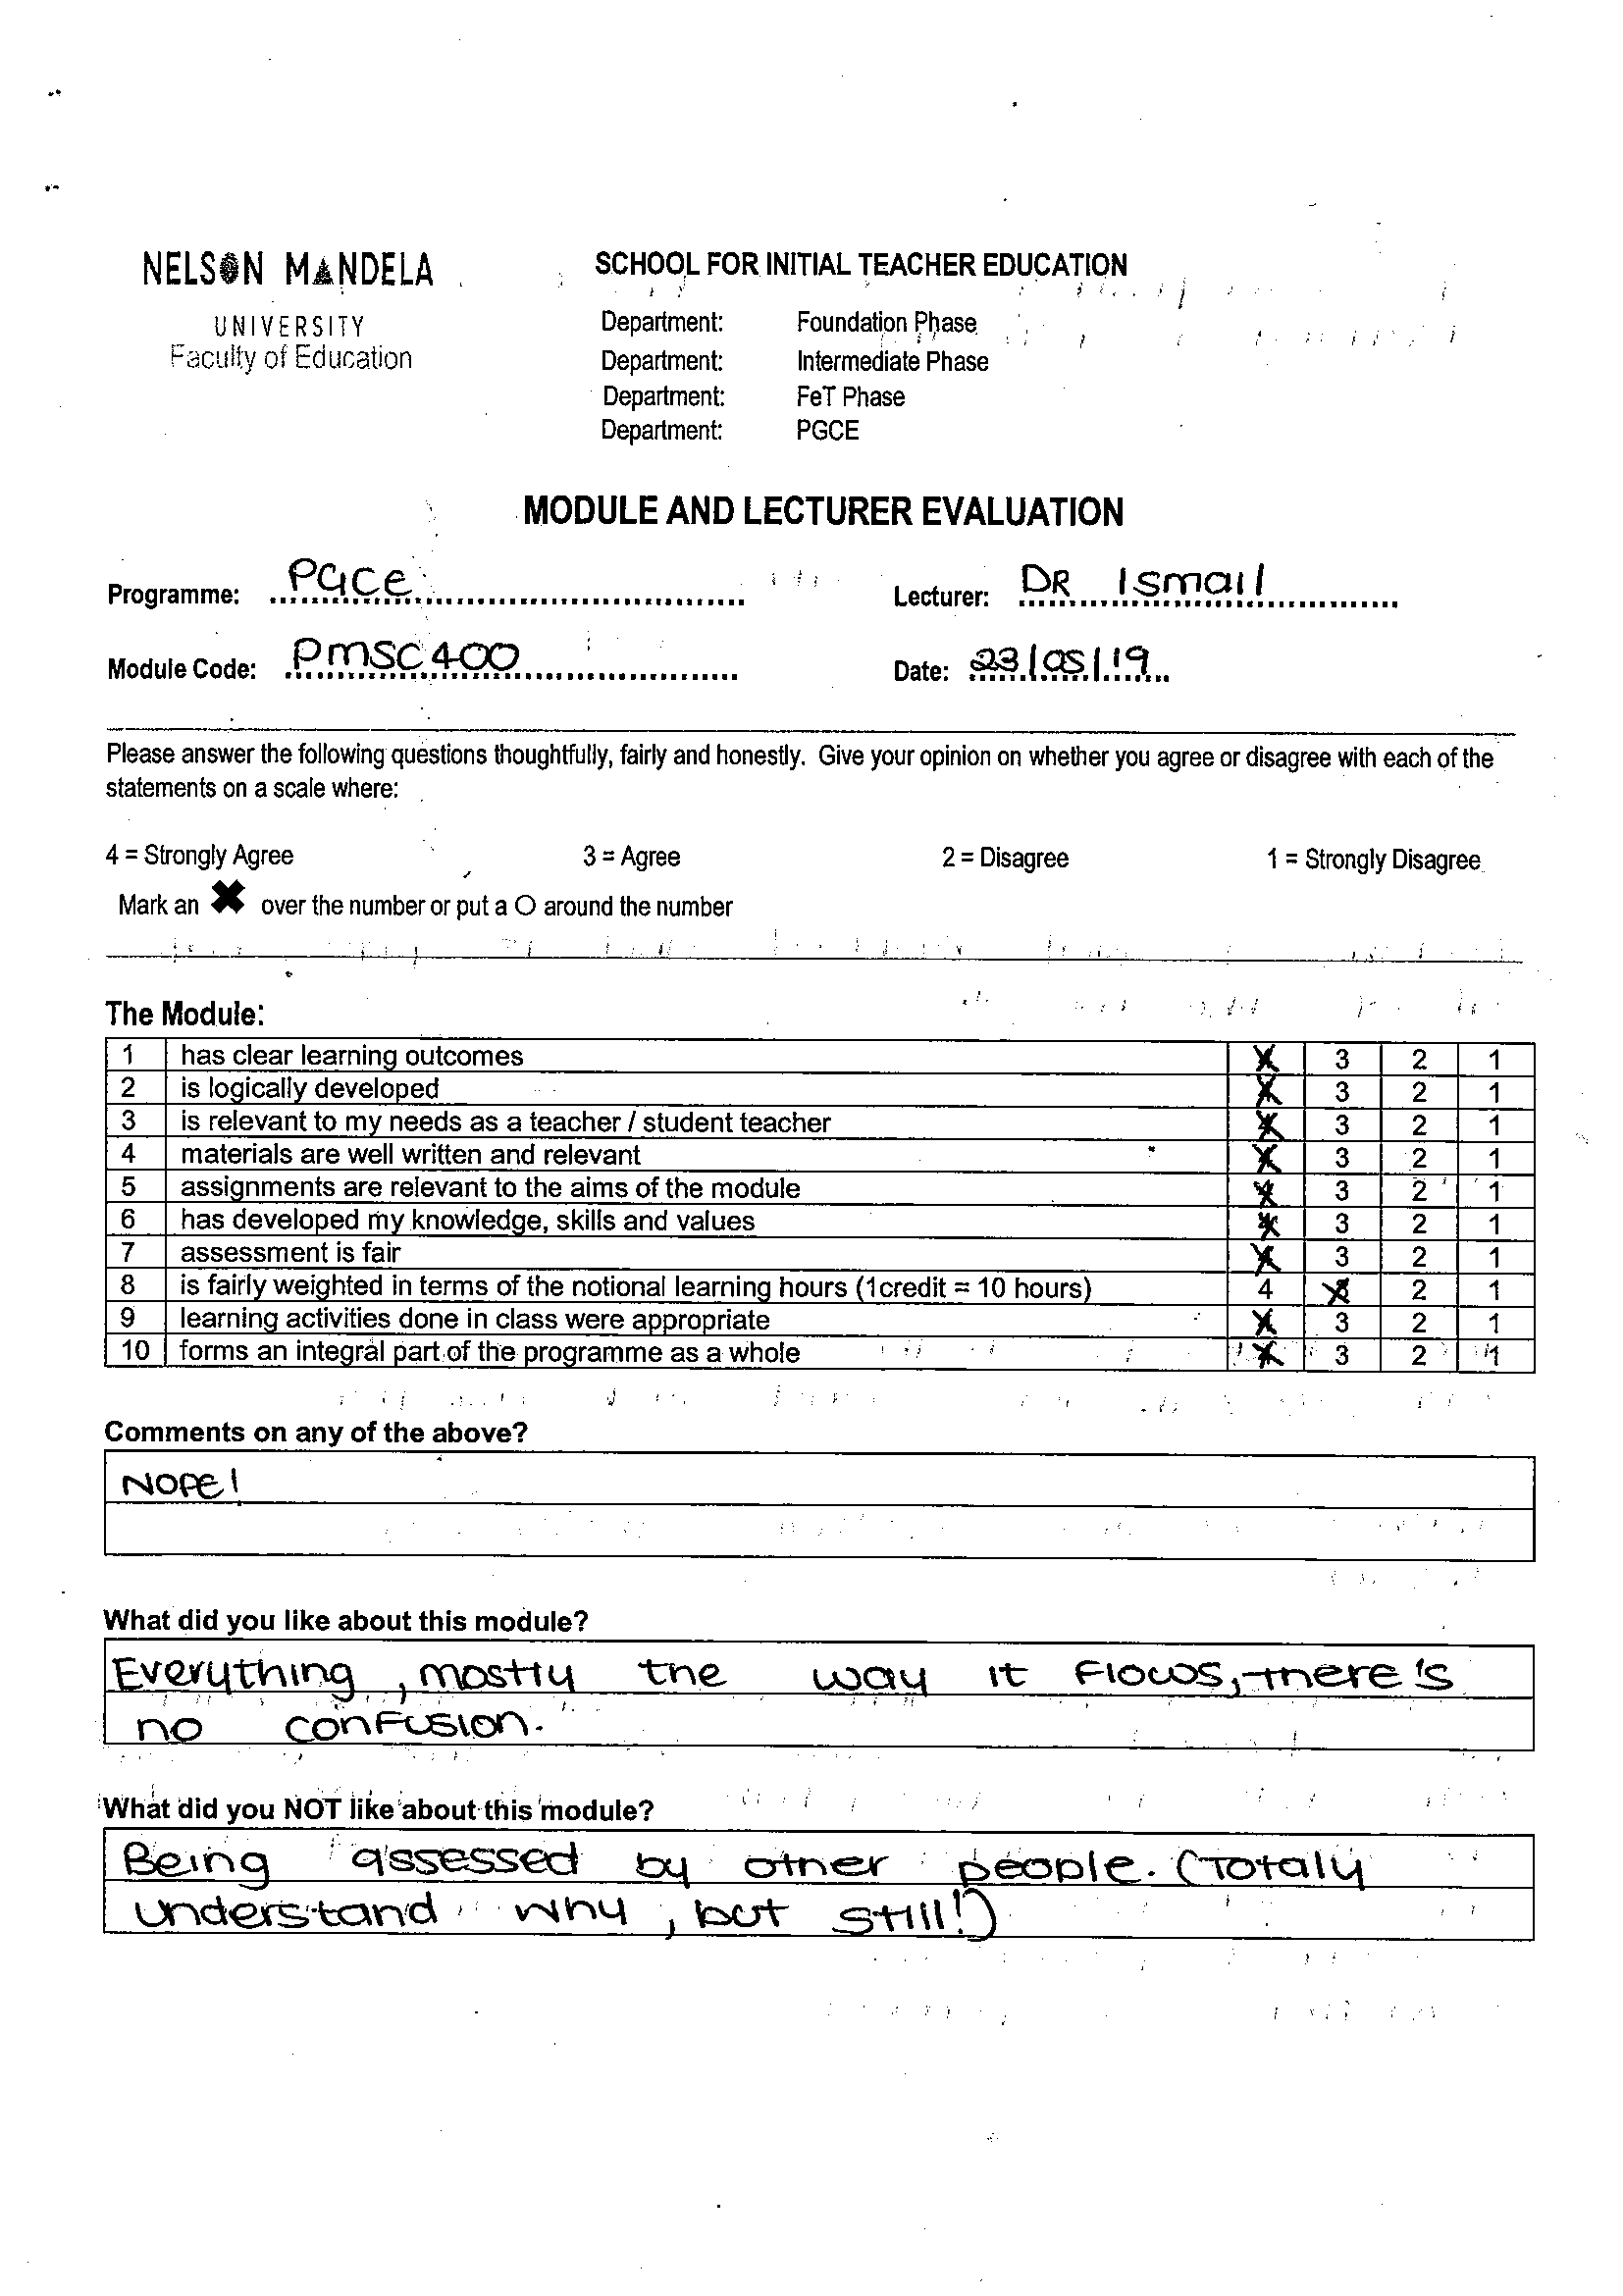 NELSON MANDELA
UNIVERSITY
Faculty of Education
SCHOOL FOR INITIAL TEACHER EDUCATION
Department: Foundation Phase
Department: Intermediate Phase
Department: FeT Phase
Department: PGCE
MODULE AND LECTURER EVALUATION
Programme: PGCE Lecturer: DR Ismail
Module Code: PMSC400 Date: 23/05/19
Please answer the following questions thoughtfully, fairly and honestly. Give your opinion on whether you agree or disagree with each of the
statements on a scale where:
4 = Strongly Agree 3 = Agree 2 = Disagree 1 = Strongly Disagree
Mark an ✖ over the number or put a O around the number
The Module:
1 has clear learning outcomes X 3 2 1
2 is logically developed X 3 2 1
3 is relevant to my needs as a teacher / student teacher X 3 2 1
4 materials are well written and relevant X 3 2 1
5 assignments are relevant to the aims of the module X 3 2 1
6 has developed my knowledge, skills and values X 3 2 1
7 assessment is fair X 3 2 1
8 is fairly weighted in terms of the notional learning hours (1credit = 10 hours) 4 X 2 1
9 learning activities done in class were appropriate X 3 2 1
10 forms an integral part of the programme as a whole X 3 2 1
Comments on any of the above?
NOPE!
What did you like about this module?
Everything, mostly the way it flows, there's
no confusion.
What did you NOT like about this module?
Being assessed by other people. (Totaly
understand why, but still!)